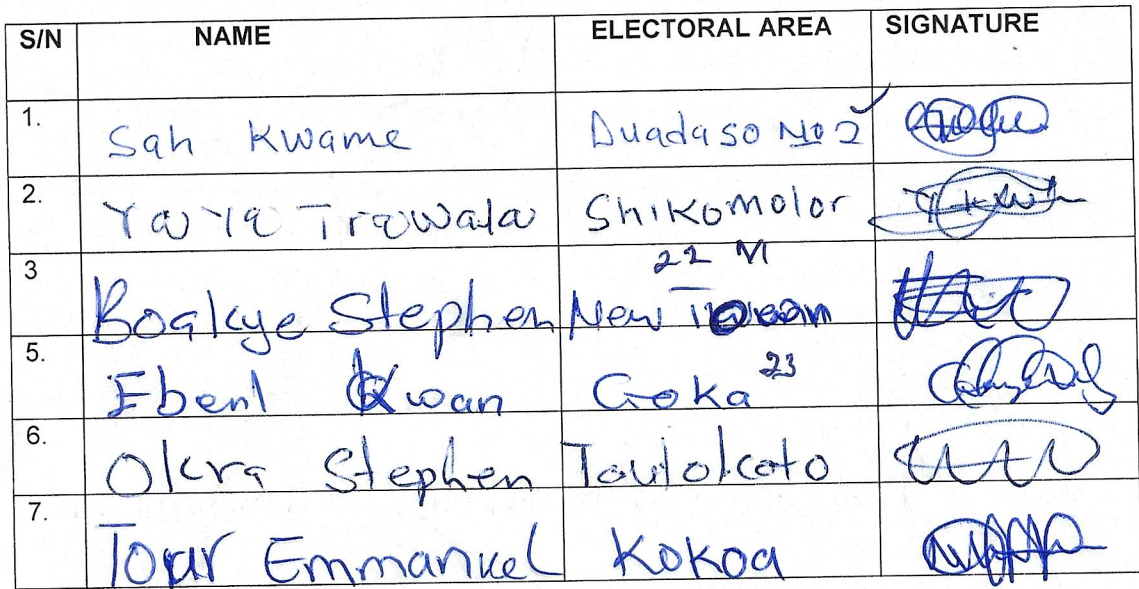 S/N NAME ELECTORAL AREA SIGNATURE
1. Sah Kwame Duadaso No 2
2. Ya Ya Trawala Shikomolor
22 M
3 Boakye Stephen New
5. Ebenl Kwan Goka 23
6. Okra Stephen Toulokoto
7. Tour Emmanuel Kokoa